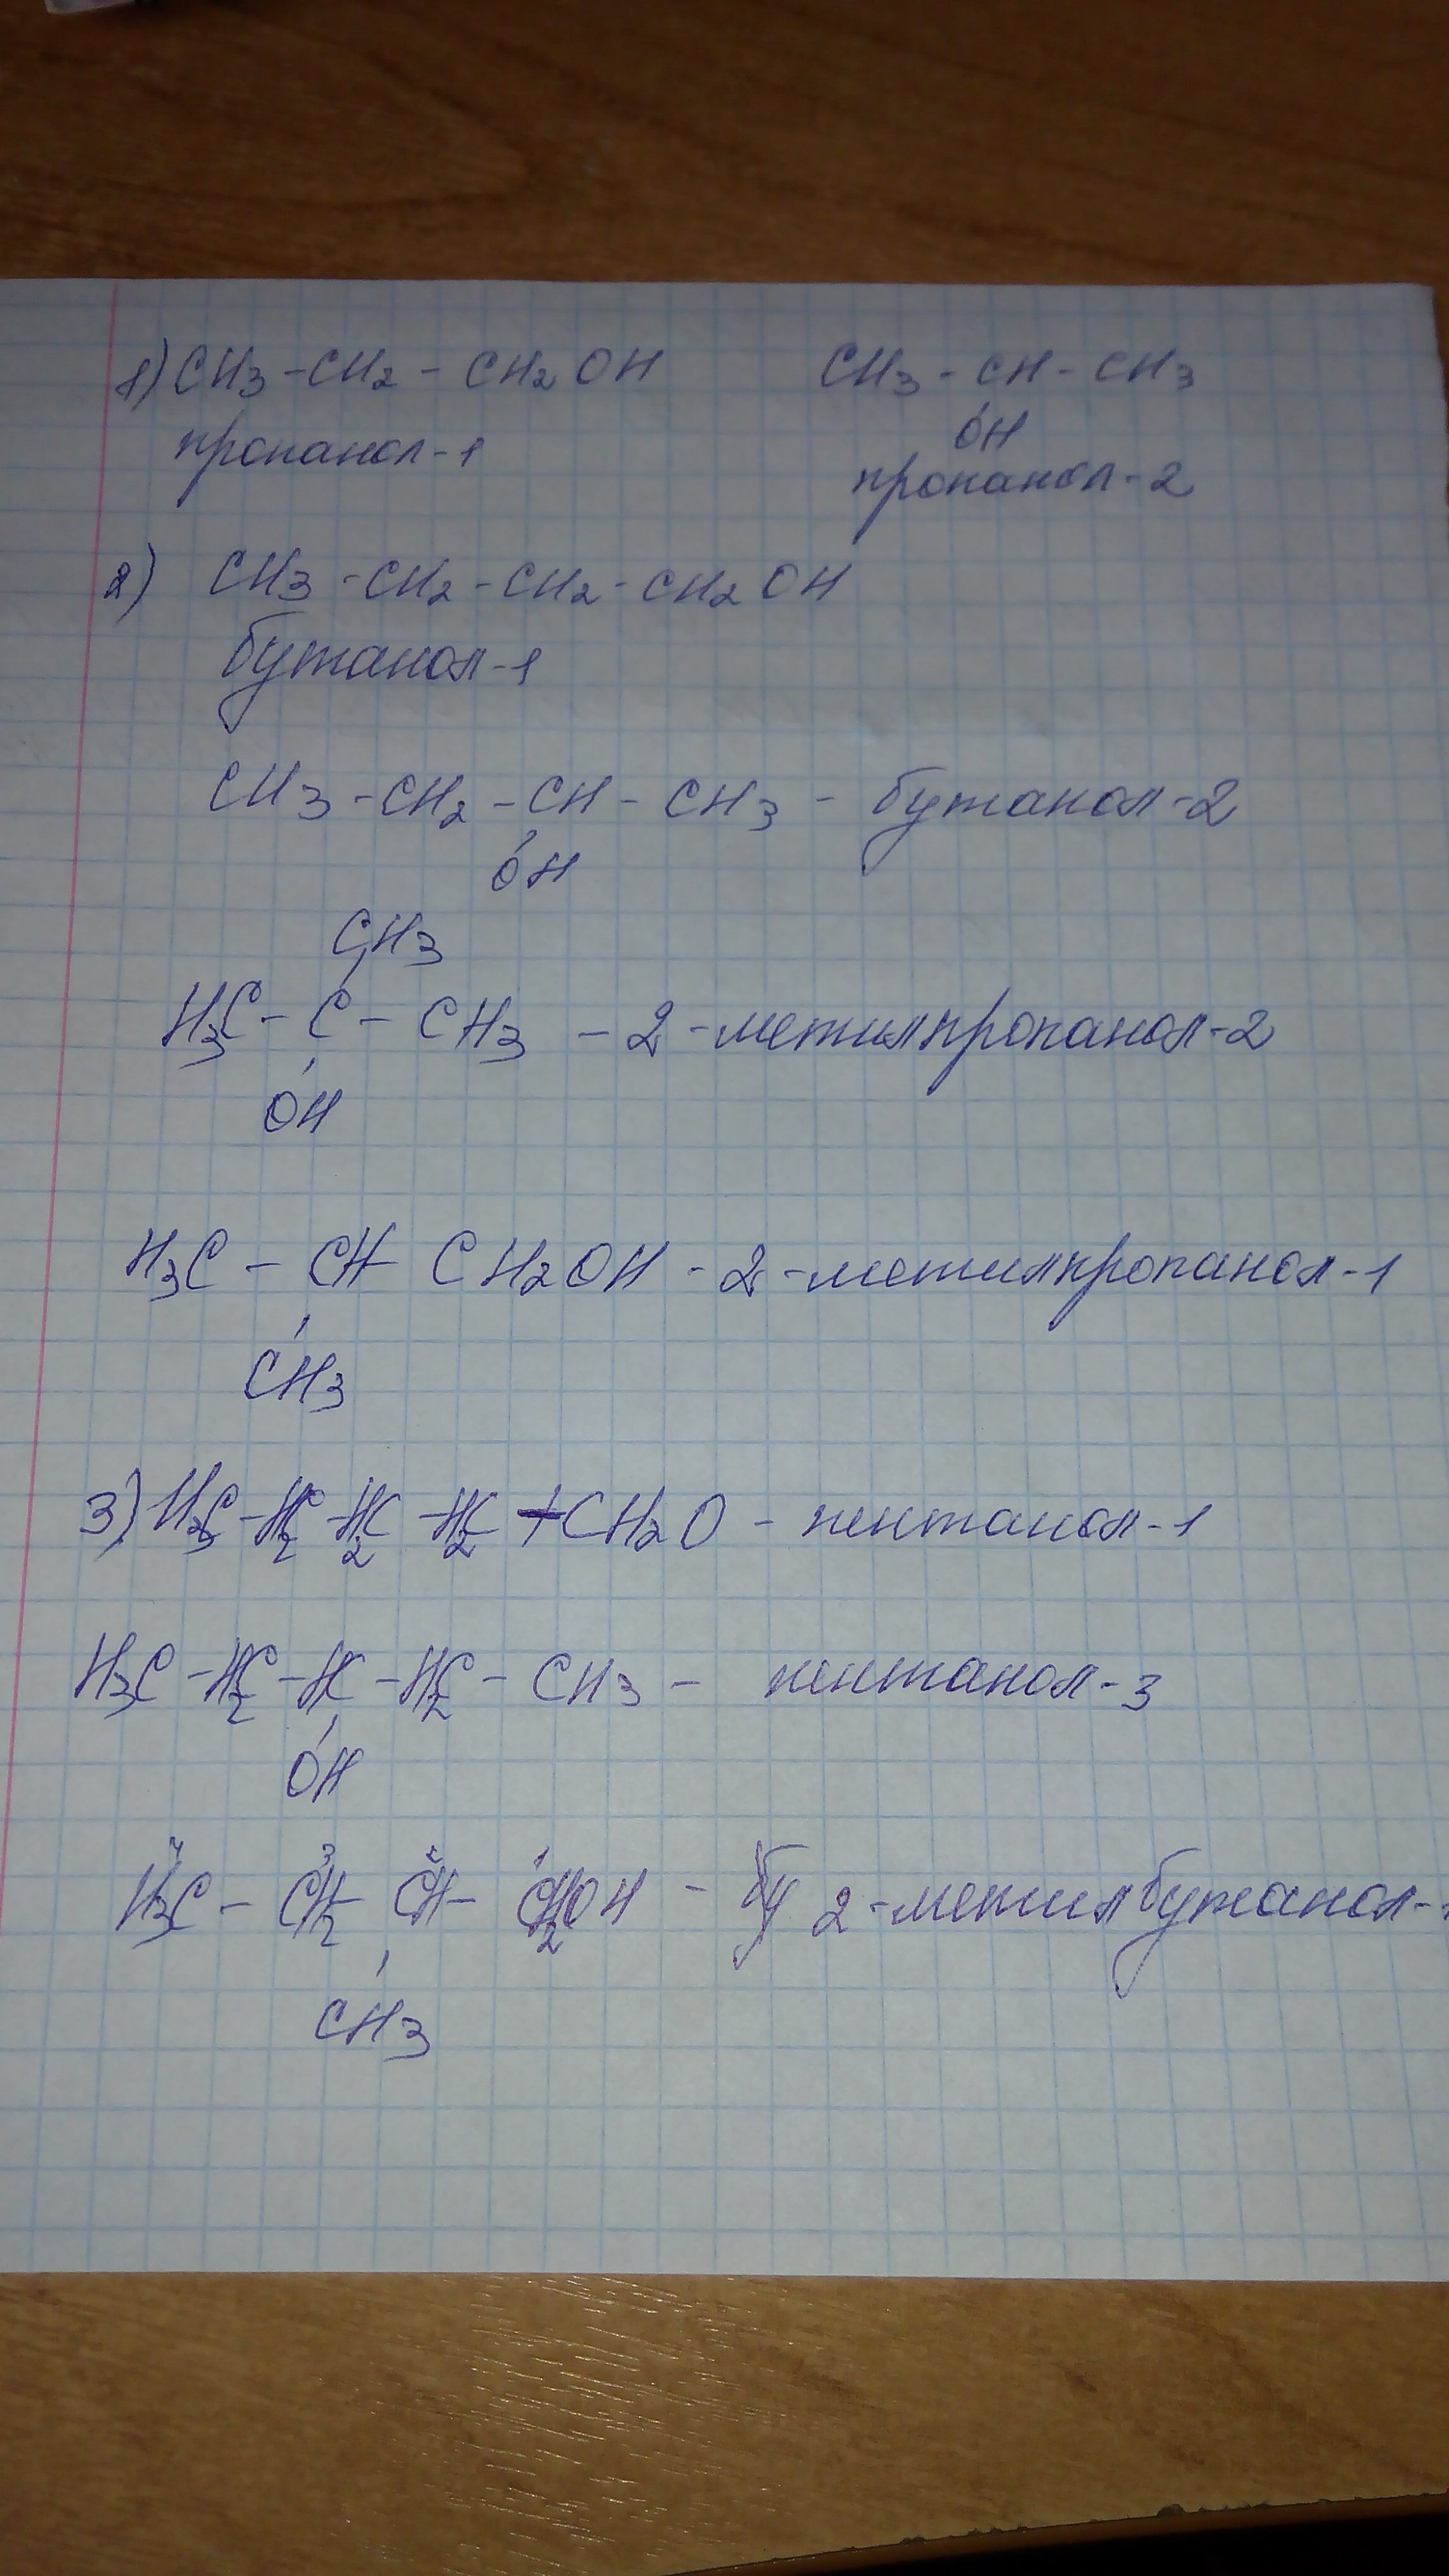 1) CH3 - CH2 - CH2OH CH3 - CH - CH3
OH
пропанол-1 пропанол-2
2) CH3 - CH2 - CH2 - CH2OH
бутанол-1
CH3 - CH2 - CH - CH3 - бутанол-2
OH
CH3
H3C - C - CH3 - 2-метилпропанол-2
OH
H3C - CH - CH2OH - 2-метилпропанол-1
CH3
3) H3C - H2C - H2C - H2C - CH2O - пентанол-1
H3C - H2C - HC - H2C - CH3 - пентанол-3
OH
4 3 2 1
H3C - CH2 - CH - CH2OH - 2-метилбутанол-1
CH3